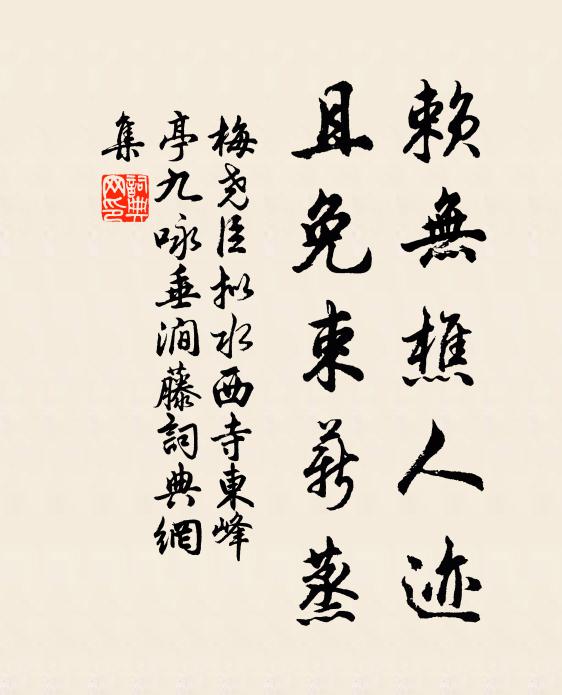 賴無樵人迹
且免束薪蒸
梅堯臣拟水西寺東峰
亭九咏垂澗藤詞典網
集
詞典網印